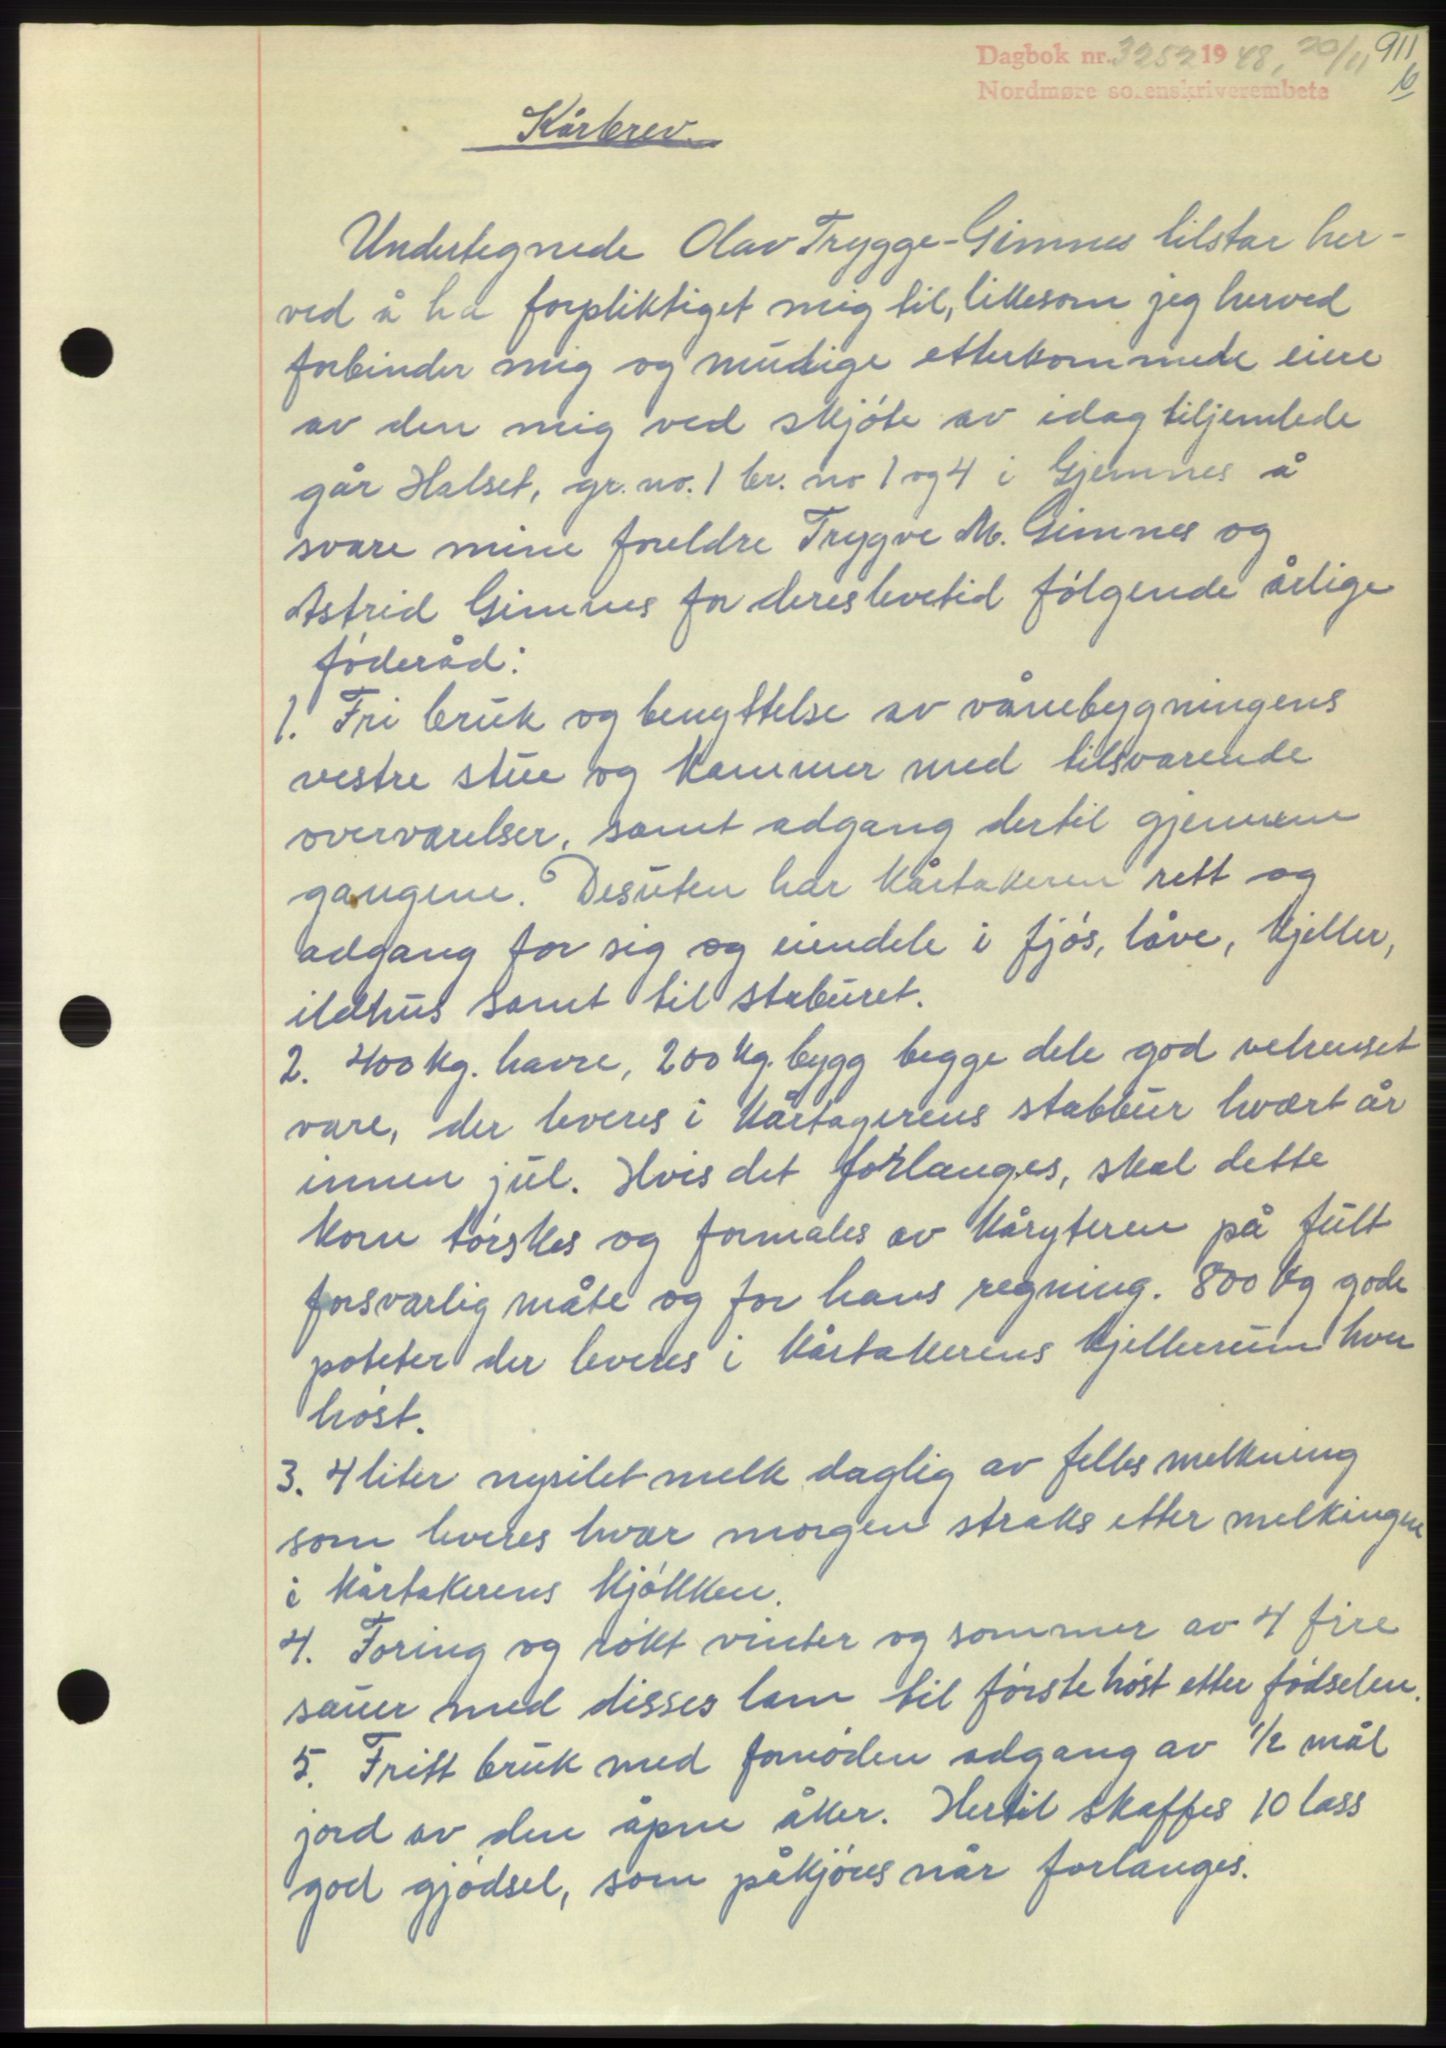 Dagbok nr. 3252 1948, 20/11 911
Nordmøre sorenskriverembete
Kårbrev.
Undertegnede Olav Trygge-Gimnes tilstar her-
ved å ha forpliktiget mig til, likesom jeg herved
forbinder mig og mulige etterkommede eiere
av den mig ved skjóte av idag tiljemlede
går Halset, gr. no. 1 br. no 1 og 4 i Gjemnes å
svare mine foreldre Trygve M. Gimnes og
Astrid Gimnes for deres levetid fólgende årlige
fóderåd:
1. Fri bruk og benyttelse av vånebygningens
vestre stue og kammer med tilsvarende
overværelser, samt adgang dertil gjennem
gangene. Desuten har kårtakeren rett og
adgang for sig og eiendele i fjós, låve, kjeller,
ildhus samt til staburet.
2. 400 kg. havre, 200 kg. bygg begge dele god velrenset
vare, der leveres i kårtagerens stabbur hvært år
innen jul. Hvis det forlanges, skal dette
korn tórskes og formales av kåryteren på fult
forsvarlig måte og for hans regning. 800 kg gode
poteter der leveres i kårtakerens kjellerrum hver
hóst.
3. 4 liter nysilet melk daglig av felles melkning
som leveres hvær morgen straks etter melkingen
i kårtakerens kjókken.
4. Foring og rókt vinter og sommer av 4 fire
sauer med disses lam til fórste hóst etter fódselen.
5. Fritt bruk med fornóden adgang av 1/2 mål
jord av den åpne åker. Hertil skaffes 10 lass
god gjódsel, som påkjóres når forlanges.